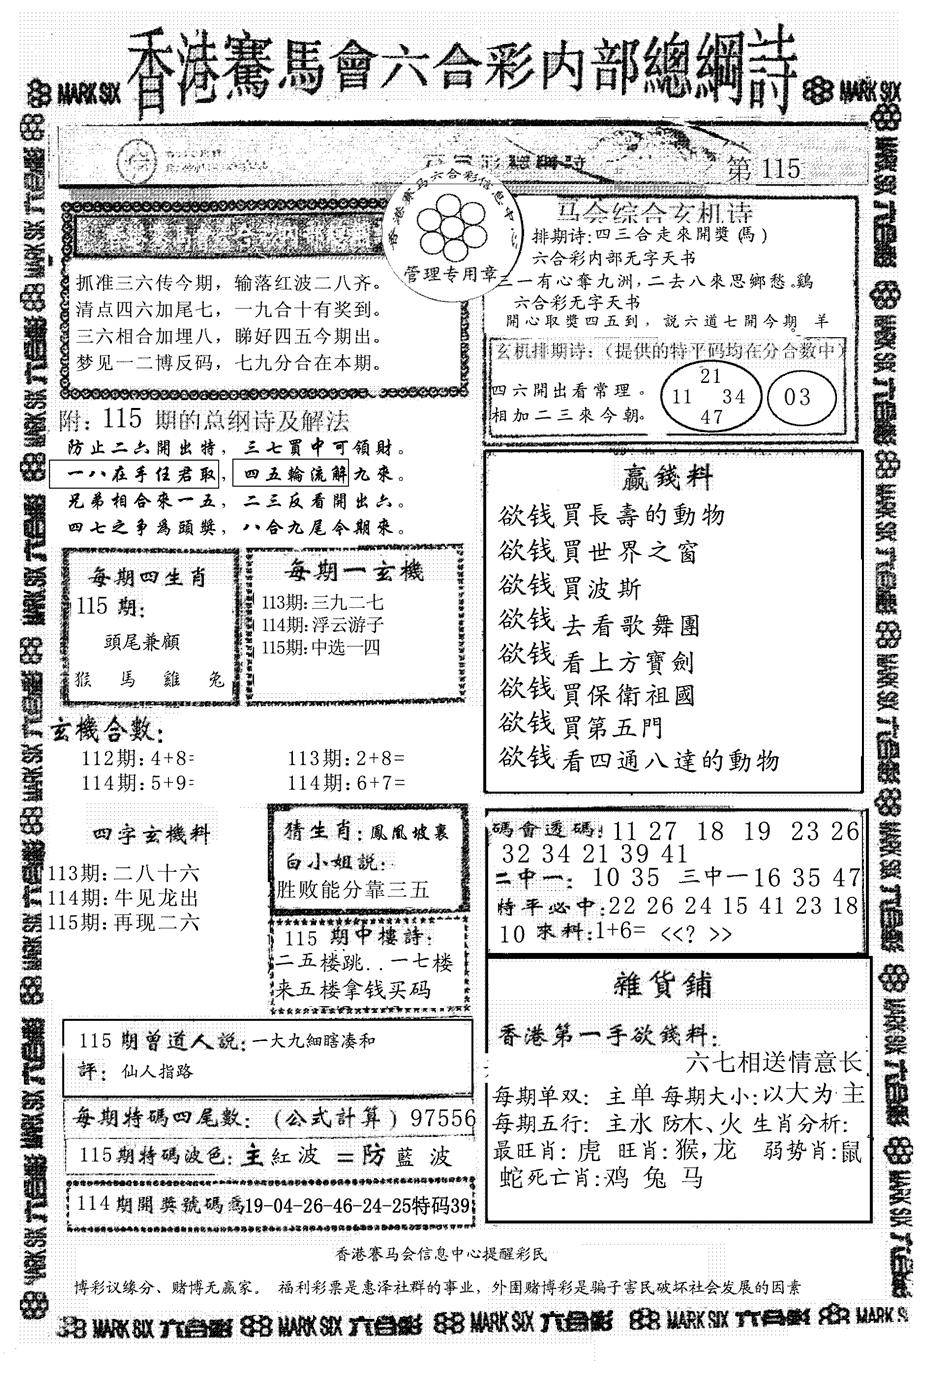 香港賽馬會六合彩内部總綱詩
MARK SIX
MARK SIX
第 115
香港賽马六合彩信息中心
管理专用章
抓准三六传今期，输落红波二八齐。
清点四六加尾七，一九合十有奖到。
三六相合加埋八，睇好四五今期出。
梦见一二博反码，七九分合在本期。
马会综合玄机诗
排期诗:四三合走來開獎(馬)
六合彩内部无字天书
三一有心奪九洲,二去八來思鄉愁。鷄
六合彩无字天书
開心取獎四五到，説六道七開今期。羊
玄机排期诗:（提供的特平码均在分合数中）
四六開出看常理。
相加二三來今朝。
21
11 34
47
03
附: 115 期的总纲诗及解法
防止二六開出特，三七買中可領財。
一八在手任君取，四五輪流解九來。
兄弟相合來一五，二三反看開出六。
四七之爭爲頭獎，八合九尾今期來。
每期四生肖
115 期:
頭尾兼顧
猴 馬 雞 兔
每期一玄機
113期:三九二七
114期:浮云游子
115期:中选一四
玄機合數:
112期:4+8=
113期:2+8=
114期:5+9=
114期:6+7=
四字玄機料
113期:二八十六
114期:牛见龙出
115期:再现二六
猜生肖:鳳凰坡裏
白小姐説:
胜败能分靠三五
115 期中樓詩:
二五楼跳..一七楼
来五楼拿钱买码
赢錢料
欲钱買長壽的動物
欲钱買世界之窗
欲钱買波斯
欲钱去看歌舞團
欲钱看上方寶劍
欲钱買保衛祖國
欲钱買第五門
欲钱看四通八達的動物
碼會透碼: 11 27 18 19 23 26
32 34 21 39 41
二中一: 10 35 三中一16 35 47
特平必中:22 26 24 15 41 23 18
10 來料:1+6= <<? >>
雜貨鋪
香港第一手欲錢料:
六七相送情意长
每期单双: 主单 每期大小:以大为主
每期五行: 主水 防木、火 生肖分析:
最旺肖: 虎 旺肖:猴,龙 弱势肖:鼠
蛇死亡肖:鸡 兔 马
115 期曾道人説:一大九細瞎凑和
評: 仙人指路
每期特碼四尾數: (公式計算) 97556
115期特碼波色:主紅波 =防藍波
114期開獎號碼爲19-04-26-46-24-25特码39
香港賽马会信息中心提醒彩民
博彩议缘分、赌博无赢家。 福利彩票是惠泽社群的事业，外围赌博彩是骗子害民破坏社会发展的因素
MARK SIX 六合彩 MARK SIX 六合彩 MARK SIX 六合彩 MARK SIX 六合彩 MARK SIX